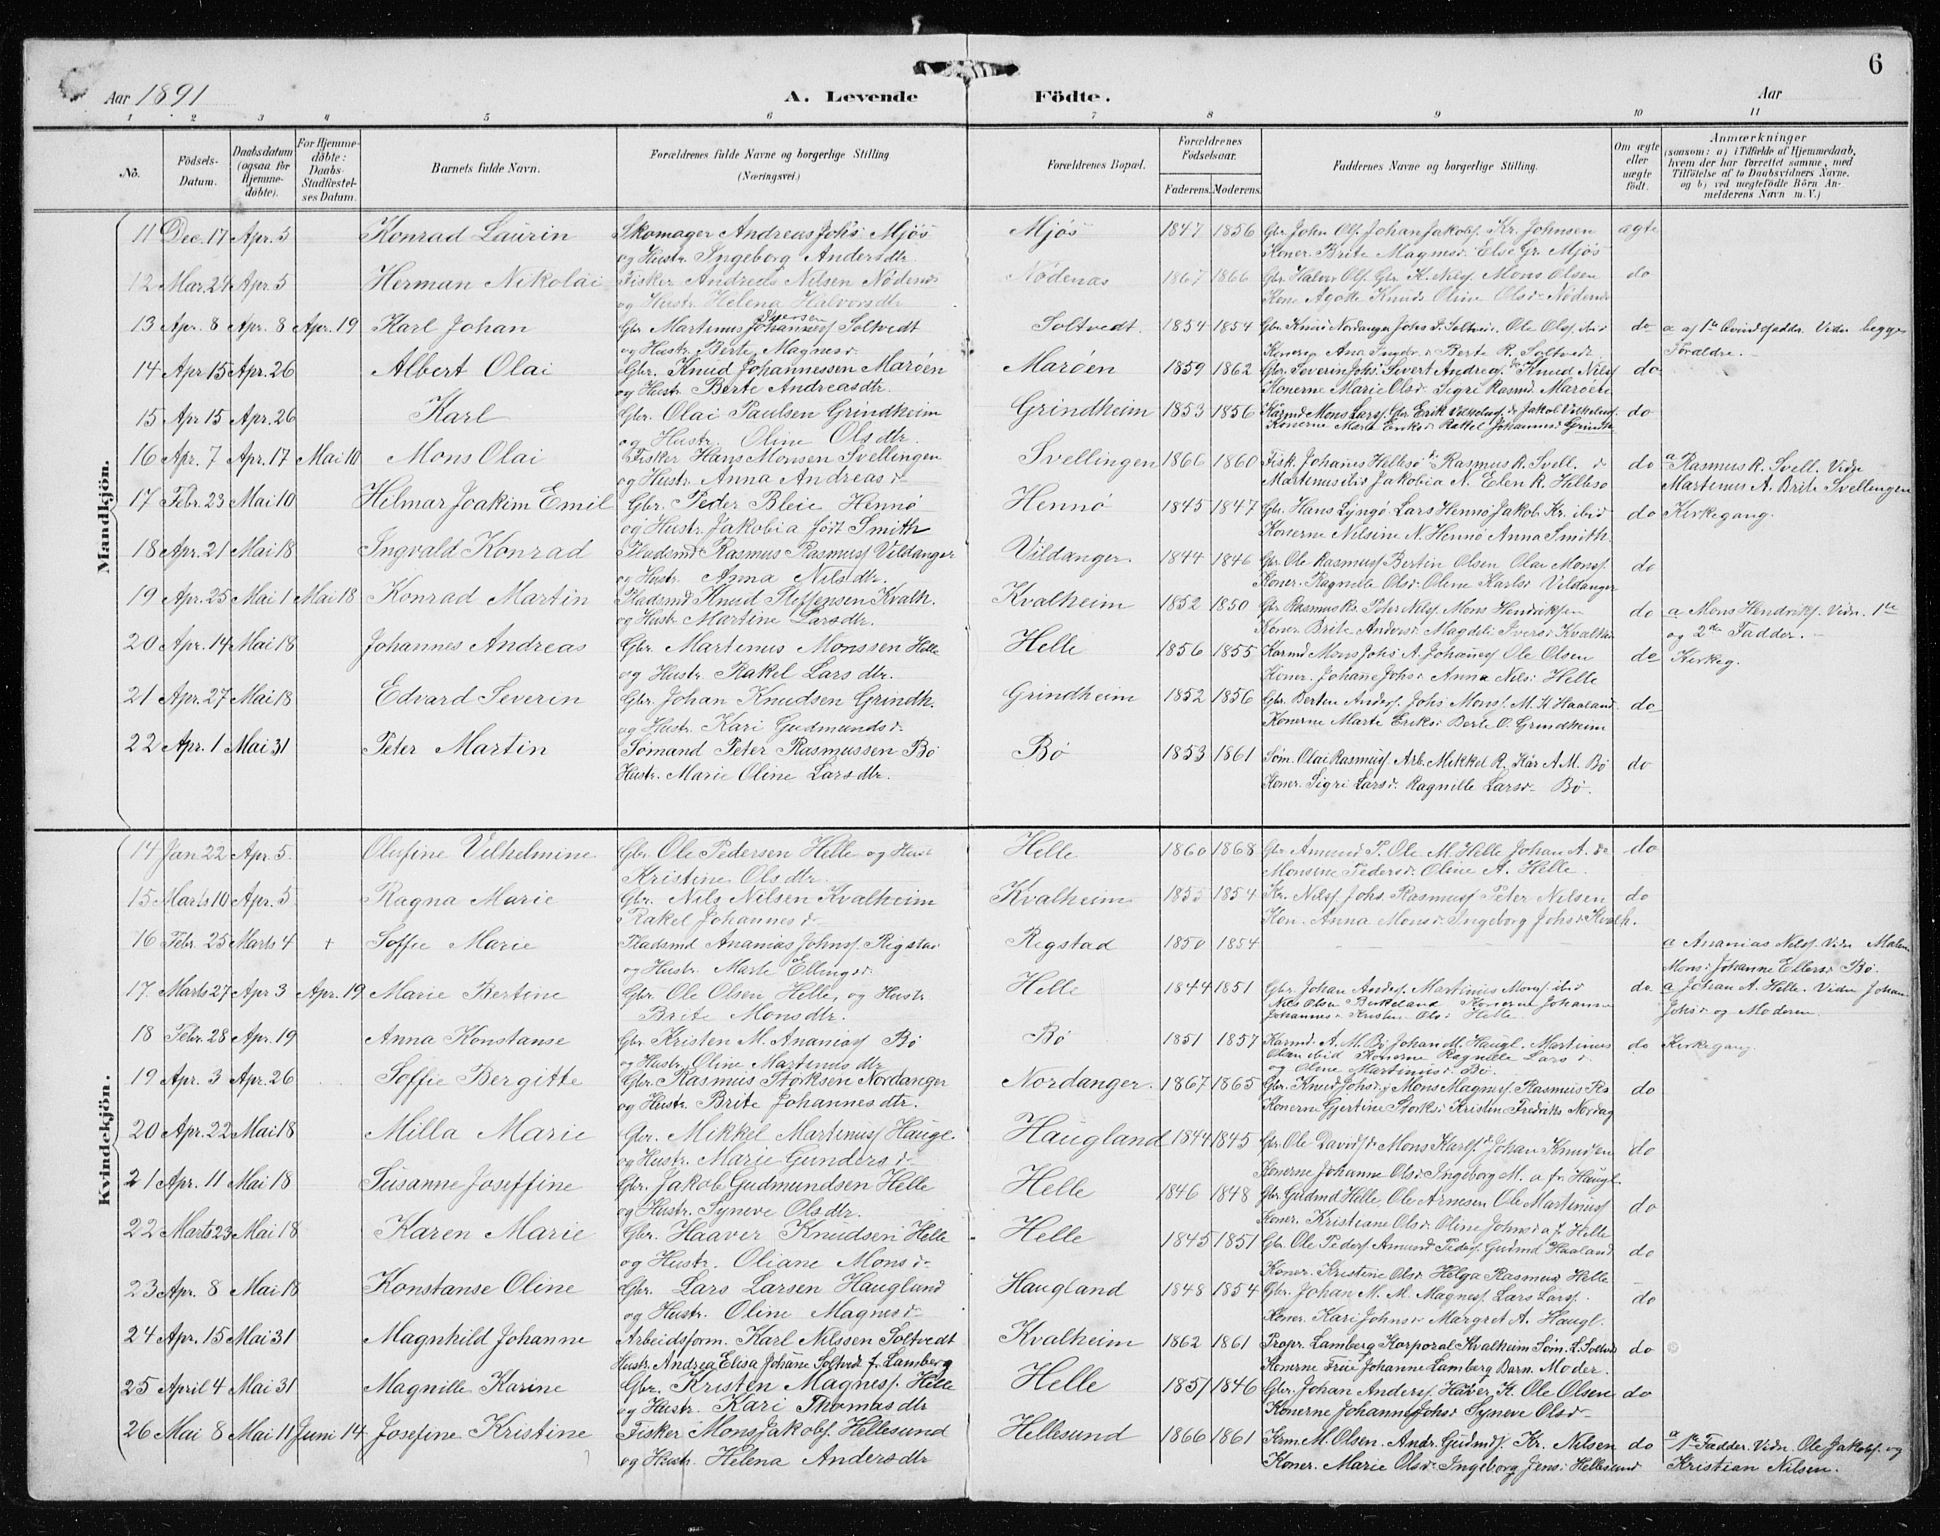 6
Aar 1891 A. Levende Födte. Aar
1 2 3 4 5 6 7 8 9 10 11
No.
Födsels-Datum.
Daabsdatum (ogsaa för Hjemme-döbte).
For Hjemme-döbte: Daabs-Stadfæstel-ses Datum.
Barnets fulde Navn.
Forældrenes fulde Navne og borgerlige Stilling (Næringsvei.)
Forældrenes Bopæl.
Forældrenes Födselsaar.
Faderens. Moderens.
Faddernes Navne og borgerlige Stilling.
Om ægte eller uægte födt.
Anmærkninger
(saasom: a) i Tilfælde af Hjemmedaab, hvem der har forrettet samme, med Tilföielse af to Daabsvidners Navne, og b) ved uægtefödte Börn An-melderens Navn m. V.)
Mandkjön.
11 Dec. 17 Apr. 5 Konrad Laurin Skomager Andreas Johs Mjøs Mjøs 1847 1856 Gbr John Ols. Johan Jakobs. Kr. Johnsen ægte
og Hustr. Ingeborg Andersdtr Koner. Brite Magnesd. Else Gr. Mjøs
12 Mar. 24 Apr. 5 Herman Nikolai Fisker Andreas Nilsen Nødenes Nødenæs 1867 1866 Gbr Halvor Ols. Gbr K. Nils. Mons Olsen do
og Hustr. Helena Halvorsdtr Kone Agote Knuds Oline Olsd. Nødenes
13 Apr. 8 Apr. 8 Apr. 19 Karl Johan Gbr Martinus Johannes Iversen Soltvedt Soltvedt. 1854 1854 Gbr Knud Nordanger Johs S. Soltved. Ole Ols. ibid do a af 1ste Qvindefadder. Vidn. begge
og Hustr. Berte Magnesd. Berte R. Soltved. Forældre.
14 Apr 15 Apr. 26 Albert Olai Gbr. Knud Johannessen Marøen Marøen 1859 1862 Gbr. Severin Johs. Sivert Andreas. Knud Nils do
og Hustr. Berte Andreasdtr. Konerne Marie Olsd. Sigri Rasmd. Marøen
15 Apr 15 Apr. 26 Karl Gbr. Olai Paulsen Grindheim Grindheim 1853 1856 Kårmd Mons Lars. Gbr. Erik Vilhelms. Jakob Vilhelms. do
og Hustr. Oline Olsdtr. Konerne Marte Eriksd. Rakel Johannesd. Grindh.
16 Apr. 7 Apr. 17 Mai 10 Mons Olai Fisker Hans Monsen Svellingen Svellingen 1866 1860 Fisk. Johanes Hellesø Rasmus R. Svell. do a Rasmus R. Svell. Vidn
og Hustr. Anna Andreasd. Martinus ibid Jakobia N. Elen R. Hellesø Martinus A. Brite Svellingen
17 Febr. 23 Mai 10 Hilmar Joakim Emil Gbr. Peder Bleie Hennø Hennø 1845 1847 Gbr. Hans Lyngø. Lars Hennø Jakob Kr. ibid do Kirkegang.
og Hustr. Jakobia født Smith Konerne Nilsine N. Hennø Anna Smith.
18 Apr. 21 Mai 18 Ingvald Konrad Pladsmd Rasmus Rasmus. Vildanger Vildanger 1844 1846 Gbr. Ole Rasmus. Bertin Olsen Olai Mons. do
og Hustr. Anna Nilsdtr. Koner. Ragnile Olsd. Oline Karlsd. Vildanger
19 Apr. 25 Mai 1 Mai 18 Konrad Martin Pladsmd Knud Steffensen Kvalh. Kvalheim 1852 1850 Gbr Rasmus Rs. Peter Nils. Mons Hendriksen do a Mons Henriks. Vidn. 1ste
og Hustr Martine Larsdtr. Koner. Brite Andersd. Magdeli Iversd. Kvalhe og 2den Fadder.
20 Apr. 14 Mai 18 Johannes Andreas Gbr. Martinus Monssen Helle Helle 1856 1855 Kårmd Mons Johs. A. Johanes. Ole Olsen do Kirkeg.
og Hustr. Rakel Larsdtr. Koner. Johane Johsd. Anna Nilsd. Helle
21 Apr. 27 Mai 18 Edvard Severin Gbr. Johan Knudsen Grindh. Grindheim 1852 1856 Gbr. Berten Anders. Johs Mons. M. K. Haaland do
og Hustr. Kari Gudmundsd. Konerne Marte Eriksd. Berte O. Grindheim
22 Apr. 1 Mai 31 Peter Martin Sømand Peter Rasmussen Bø Bø 1853 1861 Søm. Olai Rasmus. Arb. Mikkel R. Kår A. M. Bø do
Hustr. Marie Oline Larsdtr. Koner. Sigri Larsd. Ragnille Larsd. Bø.
Kvindekjön.
14 Jan 22 Apr. 5 Olufine Vilhelmine Gbr. Ole Pedersen Helle og Hust Helle 1860 1868 Gbr Amund P. Ole M. Helle Johan A. do do
Kristine Olsdtr. Monsine Pedersd. Oline A. Helle.
15 Marts 10 Apr. 5 Ragna Marie Gbr. Nils Nilsen Kvalheim Kvalheim 1855 1854 Kr. Nils. Johs. Rasmus. Peter Nilsen do
Rakel Johannesd. Kon. Anna Monsd. Ingeborg Johsd. Kvalh.
16 Febr. 25 Marts 4 + Soffie Marie Pladsmd Ananias Johns. Rigstad Rigstad 1850 1854 a Ananias Nils. Vidn. Malene
og Hustr. Marte Ellingsd. Monsd. Johanne Ellersd. Bø.
17. Marts 27 Apr 3 Apr. 19 Marie Bertine Gbr. Ole Olsen Helle, og Hustr Helle 1844 1851 Gbr. Johan Anders. Martinus Mons. ibid do a Johan A. Helle. Vidn Johan
Brite Monsdtr. Nils Olsen Birkeland Konerne Johanne Johannesd. Kristen Olsd. Helle. Johsd. og Moderen.
18 Febr. 28 Apr. 19 Anna Konstanse Gbr. Kristen M. Ananias Bø Bø 1851 1857 Kårmd. A. M. Bø Johan M. Haugl. Martinus do Kirkegang.
og Hustr. Oline Martinusdtr Olsen ibid Konerne Ragnille Larsd. og Oline Martinusd. Bø.
19 Apr. 3 Apr. 26 Soffie Bergitte Gbr. Rasmus Størksen Nordanger Nordanger. 1867 1865 Gbr. Knud Johs. Mons Magnus. Rasmus Rs do
og Hustr. Brite Johannesdtr. Konerne Gjertine Størksd. Kristen Fredriks. Nordag
20 Apr. 22 Mai 18 Milla Marie Gbr. Mikkel Martinus. Haugl. Haugland 1844 1845 Gbr. Ole Davids. Mons Karls. Johan Knudsen do
og Hustr. Marie Gundersd. Konerne Johanne Olsd. Ingeborg M. a fr. Haugl.
21 Apr. 11 Mai 18 Susanne Joseffine Gbr. Jakob Gudmundsen Helle Helle 1846 1848 Gbr. Gudmd Helle Ole Arnesen Ole Martinus. do
og Hustr. Syneve Olsdtr. Koner. Kristiane Olsd. Oline Johnsd. a f. Helle
22 Marts 23 Mai 18 Karen Marie Gbr. Haaver Knudsen Helle Helle 1845 1851 Gbr. Ole Peders. Amund Peders. Gudmd Haaland do
og Hustr. Oliane Monsd. Koner. Kristine Olsd. Helga Rasmusd. Helle
23 Apr. 8 Mai 18 Konstanse Oline Gbr. Lars Larsen Haugland Haugland 1848 1854 Gbr. Johan M. M. Magnes. Lars Lars. do
og Hustr. Oline Magnesd. Koner. Kari Johnsd. Margret A. Haugl.
24 Apr. 15 Mai 31 Magnhild Johanne Arbeidsform. Karl Nilssen Soltvedt Kvalheim 1862 1861 Propr. Lamberg Korporal Kvalheim Søm. L. Soltved do
Hustr. Andrea Elisa Johane Soltvedt f. Lamberg Konerne Frue Johanne Lamberg Barn. Moder.
25 April 4 Mai 31 Magnille Karine Gbr. Kristen Magnes. Helle Helle 1851 1846 Gbr. Johan Anders. Haver K. Ole Olsen do
og Hustr. Kari Thomasdtr Konerne Johanne Johsd. Syneve Olsd.
26 Mai 8 Mai 11 Juni 14 Josefine Kristine Fisker Mons Jakobs. Hellesund Hellesund 1866 1861 Krm. M. Olsen. Andr. Gudmds. Kr. Nilsen do a 1ste Fadder. Vidn. Ole Jakobs. og
og Hustr. Helena Andersdtr Koner. Marie Olsd. Ingeborg Jensd. Hellesund Kristian Nilsen.